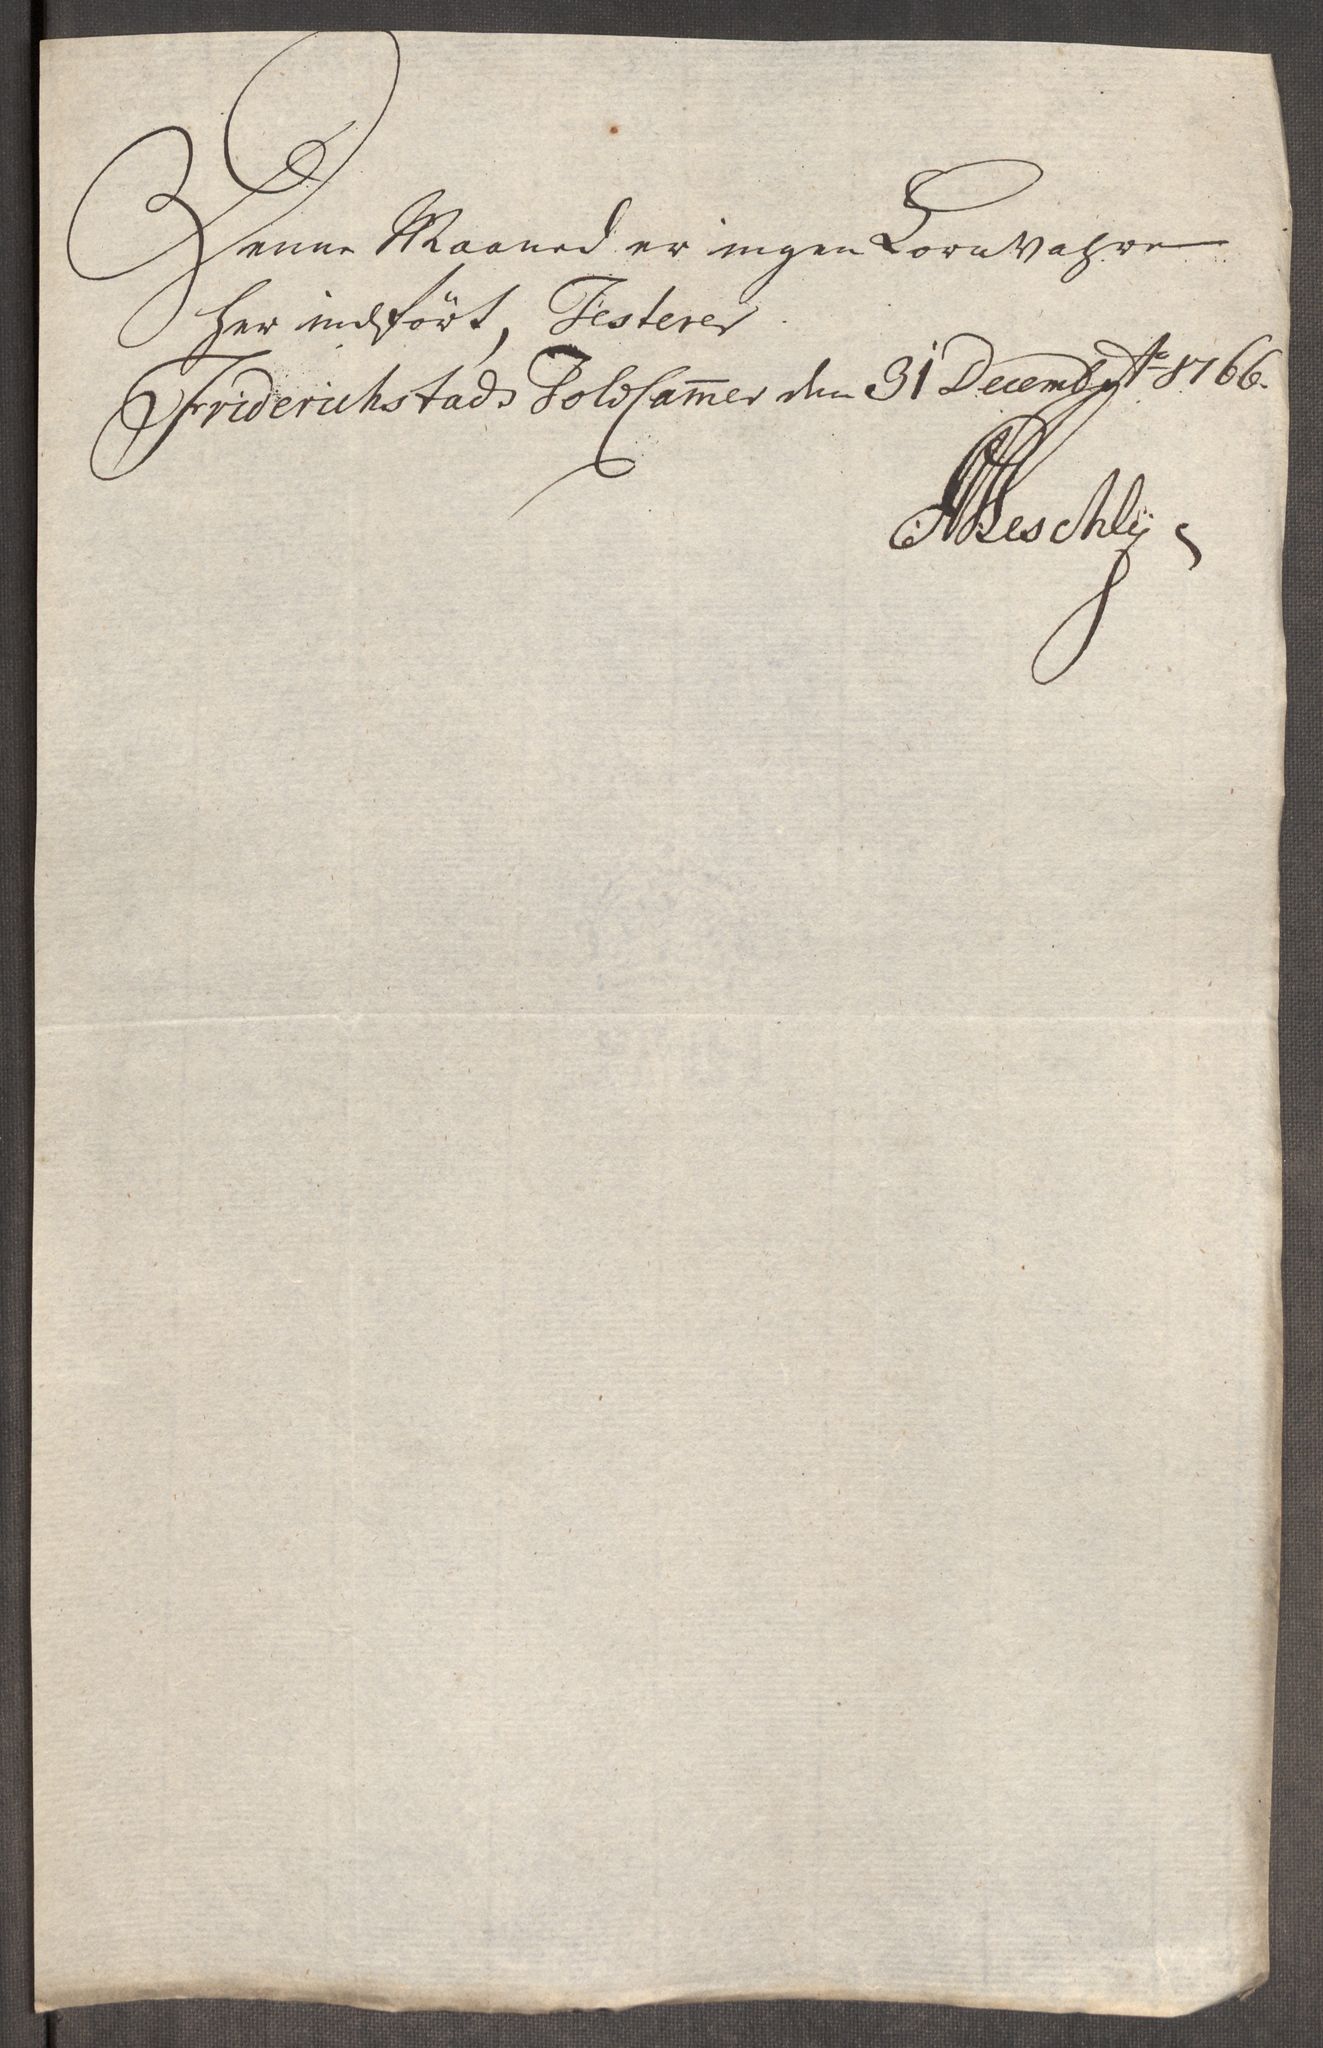 Denne Maaned er ingen Korn Vahre
her indført, Testerer
Friderichstads Told Cam̄er den 31 Decembr 1766.